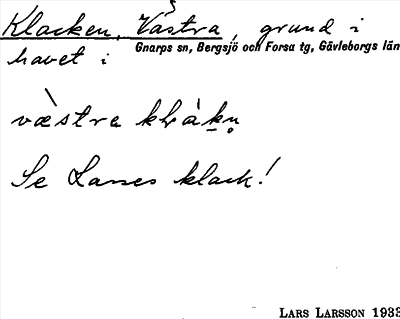 Klacken, Västra, grund i
havet i Gnarps sn, Bergsjö och Forsa tg, Gävleborgs län
Se Larses klack!
LARS LARSSON 1933